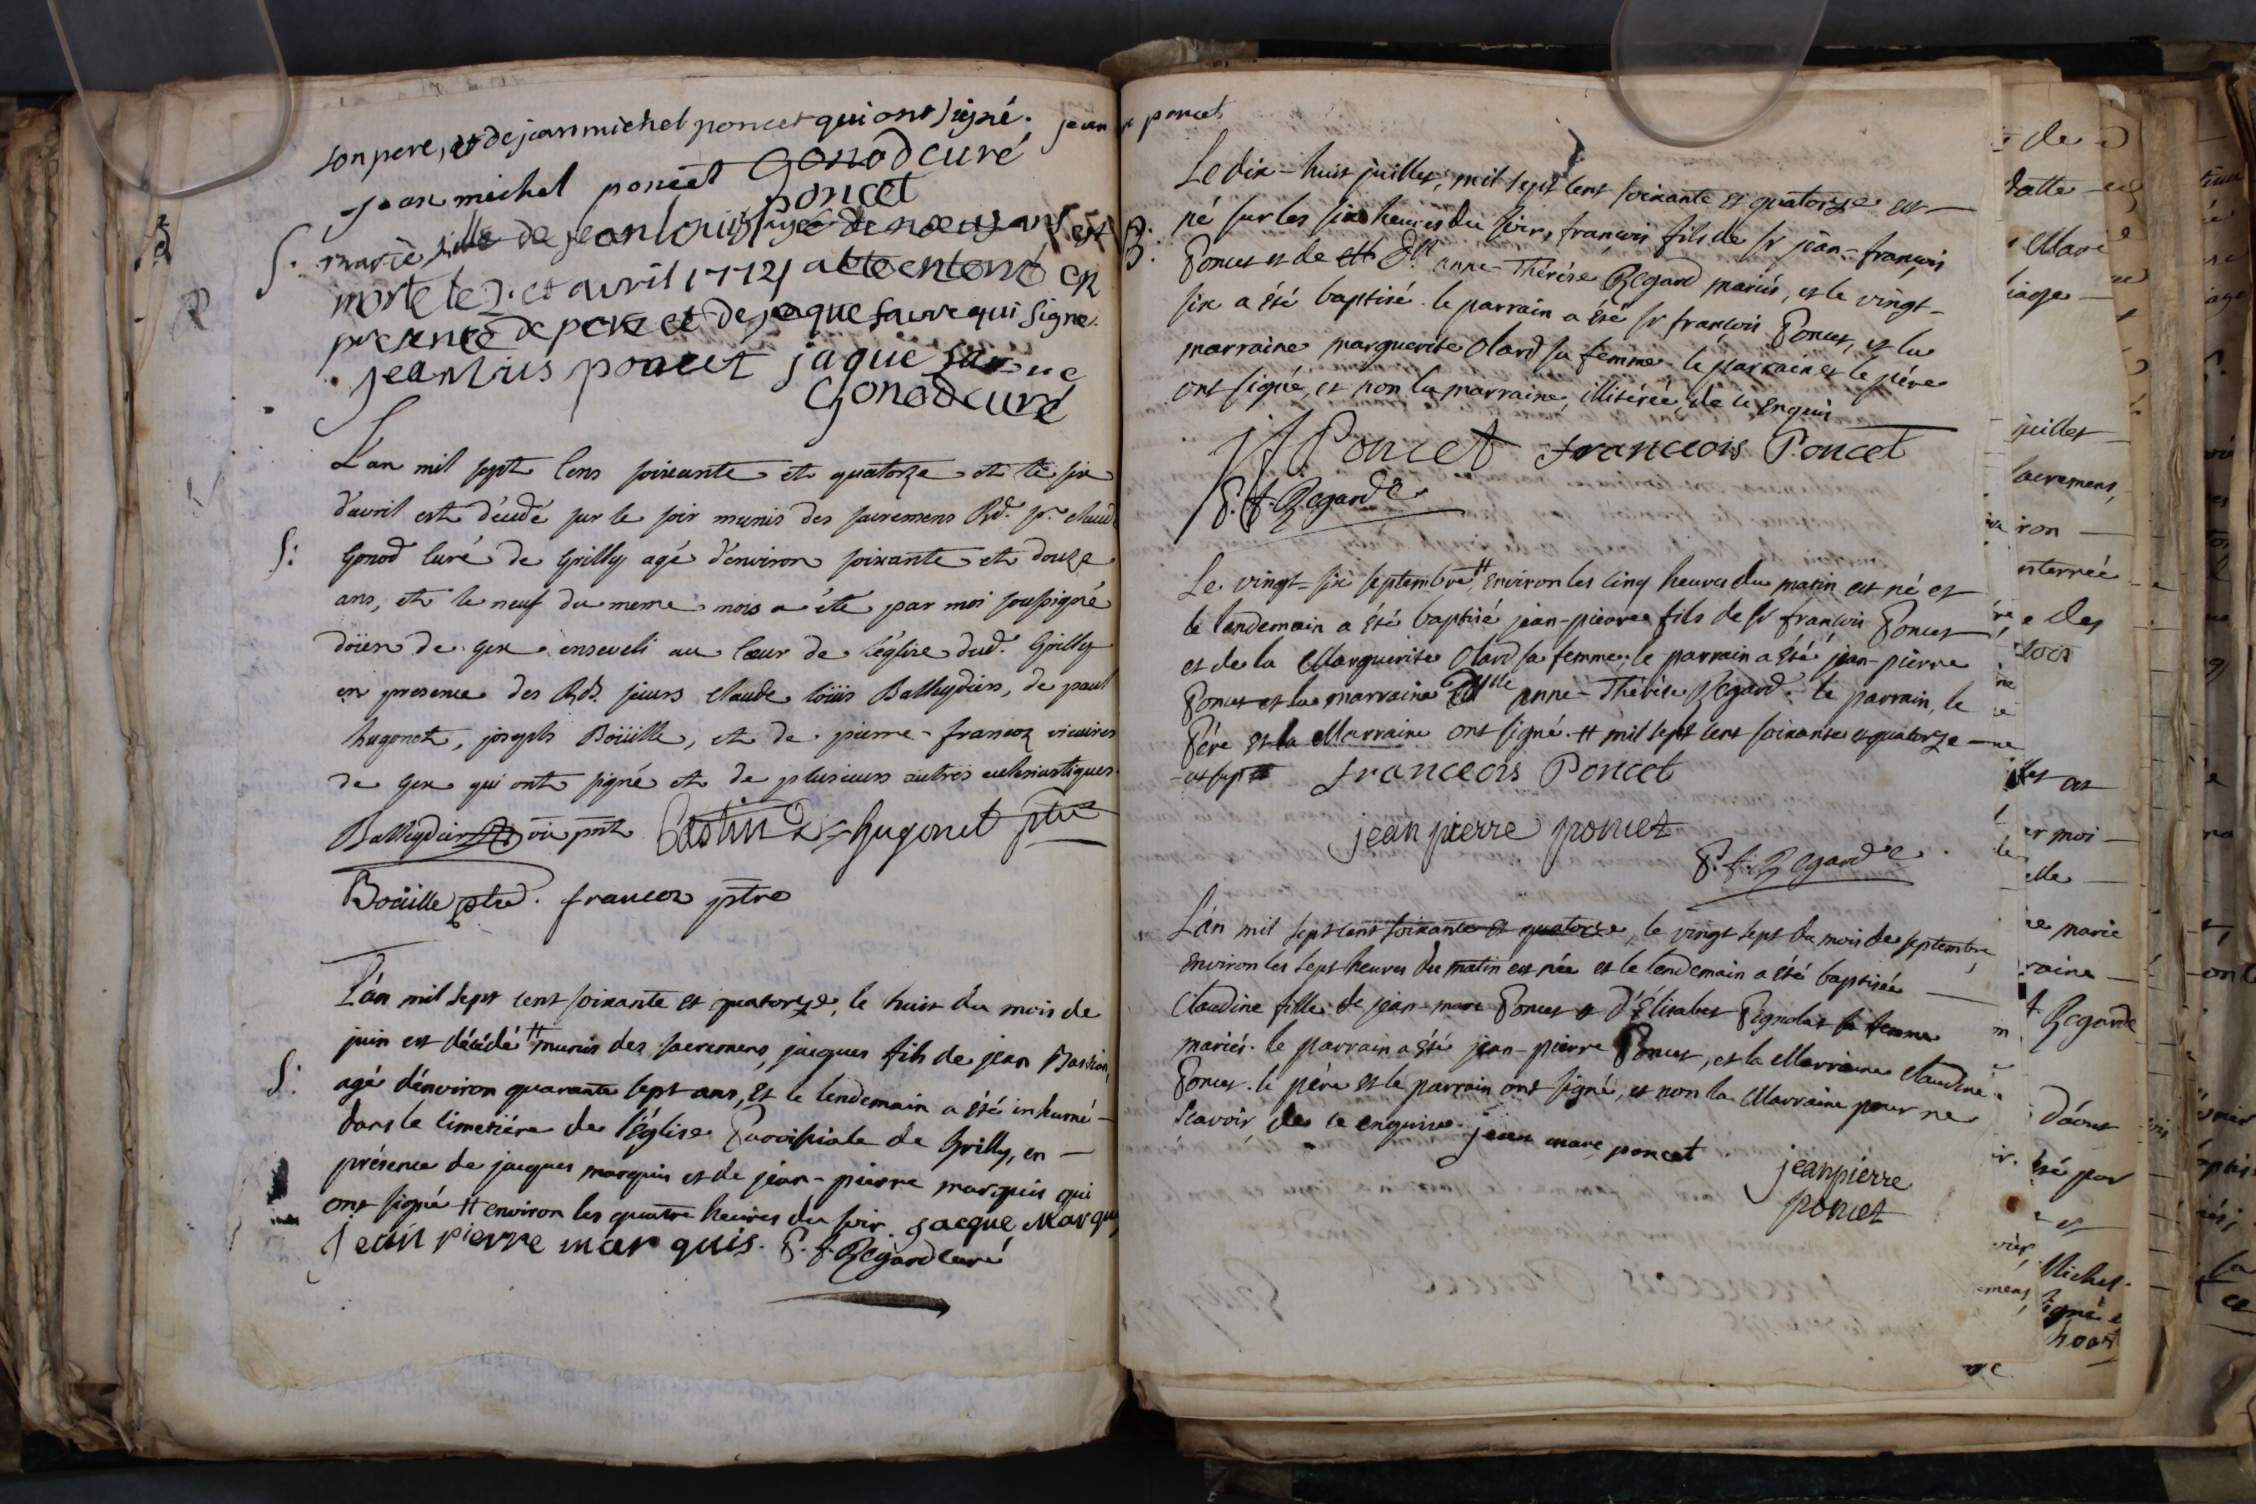 son pere, et de jean michel poncet qui ont signé. jean
jean michel poncet Gonod curé
poncet
S. marie fille de jean louis agé de neuf ans est
morte le 2. et avril 1772 a été enterré en
presence de pere et de jaque favre qui signe.
jean louis poncet jaque favre
Gonod curé
L'an mil sept cens soixante et quatorze et le six
d'avril est décédé sur le soir munis des sacremens Rd. sr. claude
S: Gonod curé de Grilly agé d'environ soixante et douze
ans, et le neuf du meme mois a été par moi soussigné
doïen de gex enseveli au cœur de l'église dud. Grilly
en presence des Rds. sieurs claude loüis Balleydier, de paul
hugonet, joseph Boüille, et de pierre-francoz vicaires
de gex qui ont signé et de plusieurs autres eclesiastiques
Balleydier hugonet ptre
Boüille ptre. francoz ptre
L'an mil sept cent soixante et quatorze, le huit du mois de
juin est décédé # munis des sacremens, jacques fils de jean Bastian,
S: agé d'environ quarante sept ans, et le lendemain a été inhumé
dans le cimetiére de l'église Paroissiale de Grilly, en
présence de jacques marquis et de jean-pierre marquis qui
ont signé # environ les quatre heures du soir. Jacque Marquis
Jean pierre marquis. P. f. Regard curé
poncet
Le dix-huit juillet, mil sept cent soixante et quatorze est
B. né sur les six heures du soir, francois fils de sr jean-francois
B. Poncet et de Dlle anne-Thérèse Regard mariés, et le vingt-
six a été baptisé. le parrain a été sr françois Poncet, et la
marraine marguerite Olard sa femme. le parrain et le pére
ont signé, et non la marraine, illitérée, de ce enquis
Poncet franceois Poncet
P. f. Regard c
Le vingt-six septembre # environ les cinq heures du matin est né et
le lendemain a été baptisé jean-pierre fils de sr francois Poncet
et de la Marguerite Olard sa femme; le parrain a été jean-pierre
Poncet et la marraine Dlle anne-Thérèse Regard. le parrain, le
Pére et la Marraine ont signé. # mil sept cent soixante et quatorze
franceois Poncet
jean pierre poncet
P. f. Regard c.
L'an mil sept cent soixante et quatorze, le vingt sept du mois de septembre,
environ les sept heures du matin est née et le lendemain a été baptisée
Claudine fille de jean-marc Poncet et d'Elisabet Pegnolat sa femme
mariés. le parrain a été jean-pierre Poncet, et la Marraine claudine
Poncet. le pére et le parrain ont signé, et non la Marraine pour ne
scavoir, de ce enquise. jean marc poncet
jeanpierre
poncet